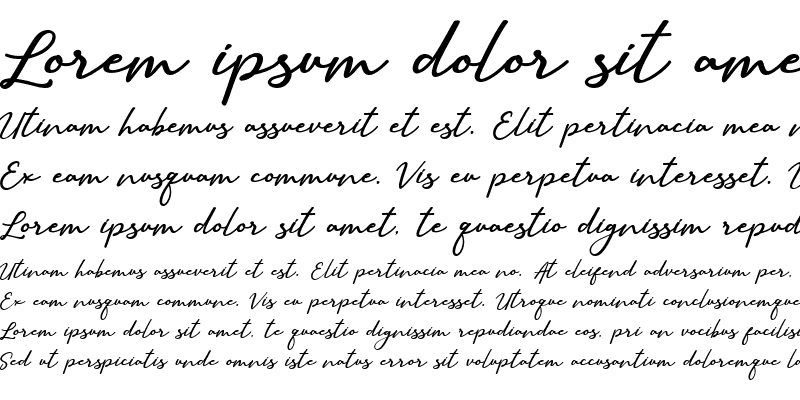 Lorem ipsum dolor sit ame
Utinam habemus assueverit et est. Elit pertinacia mea n
Ex eam nusquam commune. Vis eu perpetua interesset. U
Lorem ipsum dolor sit amet, te quaestio dignissim repud
Utinam habemus assueverit et est. Elit pertinacia mea no. At eleifend adversarium per,
Ex eam nusquam commune. Vis eu perpetua interesset. Utroque nominati conclusionemque
Lorem ipsum dolor sit amet, te quaestio dignissim repudiandae eos, pri an vocibus facilisi
Sed ut perspiciatis unde omnis iste natus error sit voluptatem accusantium doloremque la